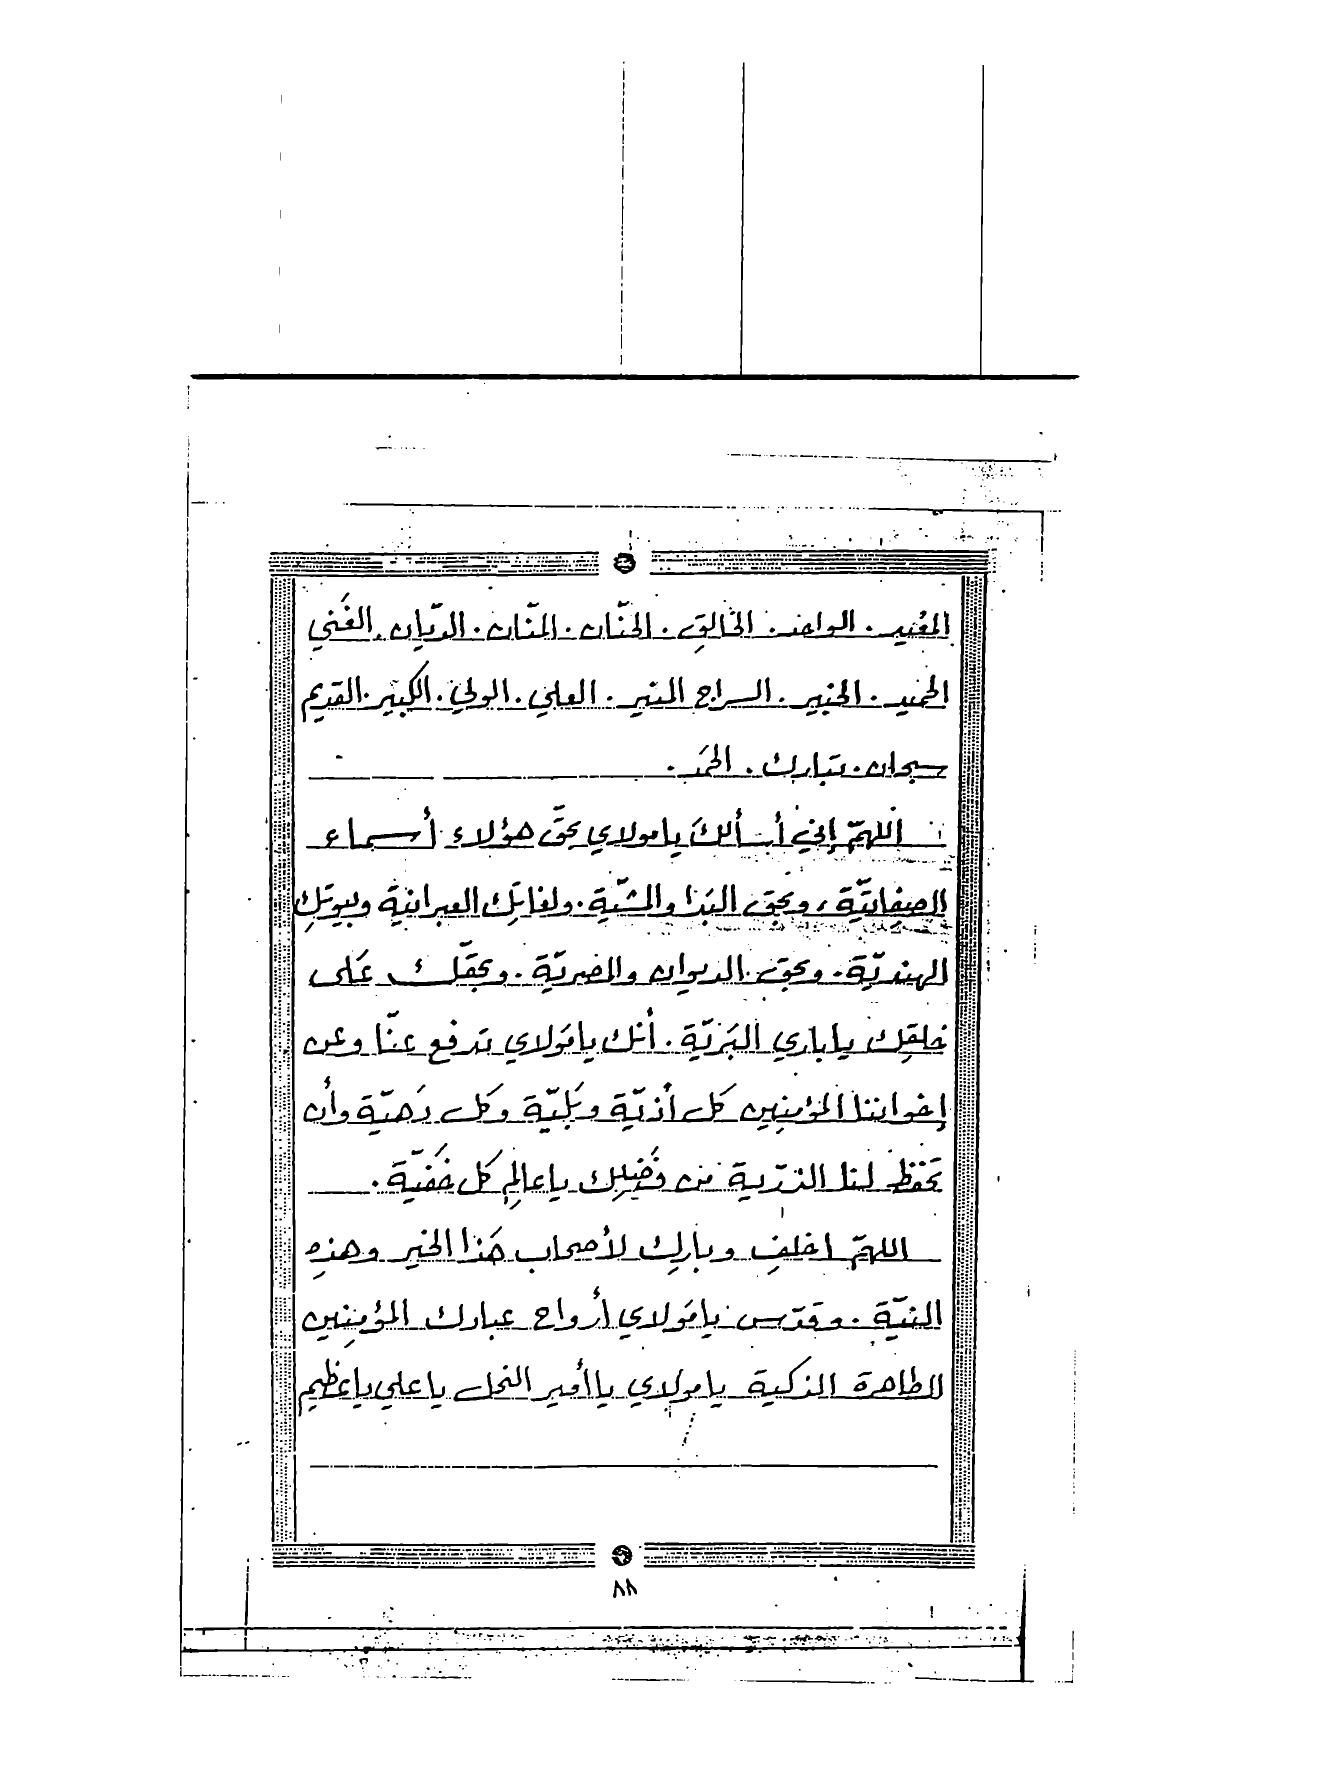 المعيد . الواحد . الخالق . الحنّان . المنّان . الديّان . الغَني
الحميد . الخبير . السراج المنير . العلي . الولي . الكبير . القديم
سبحان . تبارك . الحمَد .
اللهمّ إني أسألكَ يا مولاي بحقّ هؤلاء أسماء
الصفاتيّة ، وبحق البَدا والمشيّة . ولغاتِك العبرانية وبيوتِك
الهنديّة . وبحق الديوان والمضريّة . وبحقّك عَلى
خلقِك يا باري البَريّة . أنك يا مَولاي تدفع عنّا وعن
إخواننا المؤمنِين كل أذيّة وبَليّة وكل دَهيّة وأن
تحَفظ لنا الذرّية من فَضلِك يا عالِم كل خَفيّة .
اللهمّ اخلف وبارِك لأصحاب هَذا الخير وهذهِ
النيّة . وقدّس يا مَولاي أرواح عبادك المؤمِنين
الطاهرة الذكية يا مولاي يا أمير النحل يا علي يا عَظيم
٨٨